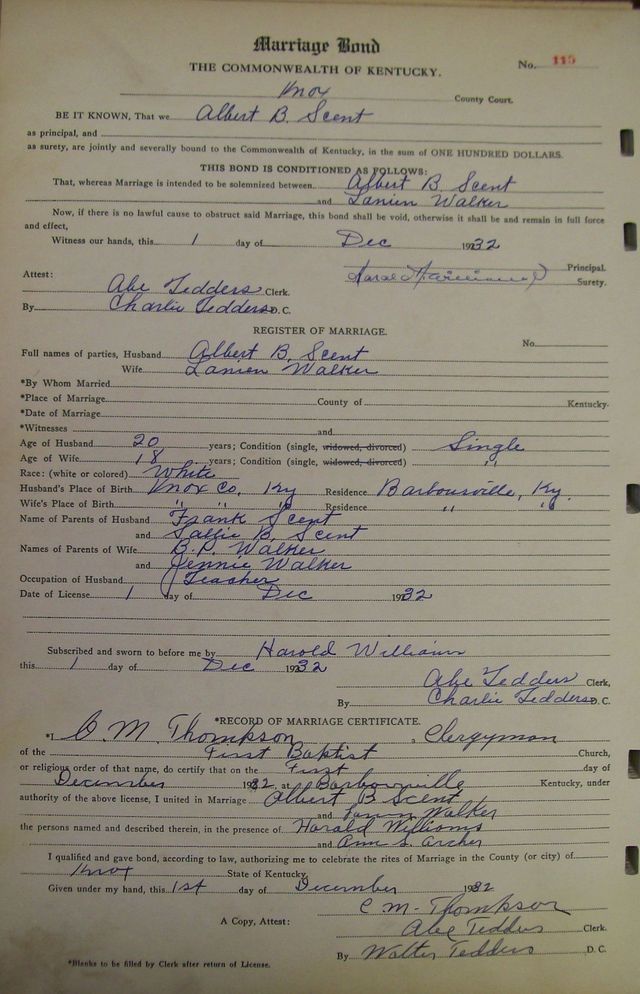 Marriage Bond
THE COMMONWEALTH OF KENTUCKY.
No. 115
Knox County Court.
BE IT KNOWN, That we Albert B. Scent
as principal, and
as surety, are jointly and severally bound to the Commonwealth of Kentucky, in the sum of ONE HUNDRED DOLLARS.
THIS BOND IS CONDITIONED AS FOLLOWS:
That, whereas Marriage is intended to be solemnized between Albert B. Scent
and Lanien Walker
Now, if there is no lawful cause to obstruct said Marriage, this bond shall be void, otherwise it shall be and remain in full force
and effect,
Witness our hands, this 1 day of Dec 1932
Principal.
Attest: Harold Surety.
Abe Tedders Clerk.
By Charlie Tedders D. C.
REGISTER OF MARRIAGE.
No.
Full names of parties, Husband Albert B. Scent
Wife Lanien Walker
*By Whom Married
*Place of Marriage County of Kentucky.
*Date of Marriage
*Witnesses and
Age of Husband 20 years; Condition (single, widowed, divorced) Single
Age of Wife 18 years; Condition (single, widowed, divorced) "
Race: (white or colored) White
Husband's Place of Birth Knox Co, Ky Residence Barbourville, Ky.
Wife's Place of Birth " " " Residence " "
Name of Parents of Husband Frank Scent
and Sallie B. Scent
Names of Parents of Wife B.P. Walker
and Jennie Walker
Occupation of Husband Teacher
Date of License 1 day of Dec 1932
Subscribed and sworn to before me by Harold Williams
this 1 day of Dec 1932
Abe Tedders Clerk,
By Charlie Tedders D. C.
*RECORD OF MARRIAGE CERTIFICATE.
*I C. M. Thompson, Clergyman
of the First Baptist Church,
or religious order of that name, do certify that on the First day of
December 1932, at Barbourville Kentucky, under
authority of the above license, I united in Marriage Albert B Scent
and Walker
the persons named and described therein, in the presence of Harald Williams
and Ann S. Archer
I qualified and gave bond, according to law, authorizing me to celebrate the rites of Marriage in the County (or city) of
Knox State of Kentucky.
Given under my hand, this 1st day of December 1932
C M. Thompson
A Copy, Attest: Abe Tedders Clerk.
By Walter Tedders D. C.
*Blanks to be filled by Clerk after return of License.